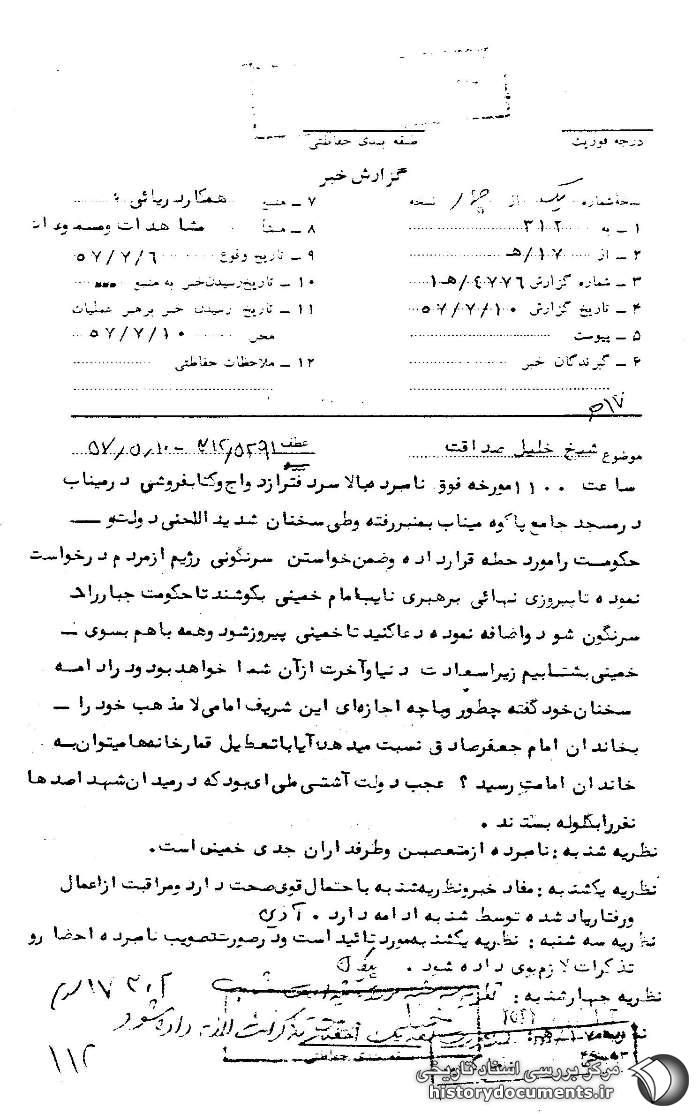 درجه فوریت
طبقه بندی حفاظتی
گزارش خبر
نسخه شماره یک از چهار نسخه
۱ ـ به ۳۱۲
۲ ـ از ۱۷/هـ
۳ ـ شماره گزارش ۴۷۷۶/هـ۱
۴ ـ تاریخ گزارش ۵۷/۷/۱۰
۵ ـ پیوست
۶ ـ گیرندگان خبر
۷ ـ منبع همکار دریائی
۸ ـ منشأ مشاهدات و مسموعات
۹ ـ تاریخ وقوع ۵۷/۷/۶
۱۰ ـ تاریخ رسیدن خبر به منبع
۱۱ ـ تاریخ رسیدن خبر به رهبر عملیات
محل ۵۷/۷/۱۰
۱۲ ـ ملاحظات حفاظتی
موضوع شیخ خلیل صداقت
عطف ۳۱۲/۵۲۹۱ ـ ۵۷/۵/۱۰
ساعت ۱۱۰۰ مورخه فوق نامبرده بالا سردفتر ازدواج و کتابفروشی در میناب
در مسجد جامع پاکوه میناب بمنبر رفته و طی سخنان شدید اللحنی دولت و ـ
حکومت را مورد حمله قرار داده و ضمن خواستن سرنگونی رژیم از مردم درخواست
نموده تا پیروزی نهائی برهبری نایب امام خمینی بکوشند تا حکومت جبار
سرنگون شود و اضافه نموده دعا کنید تا خمینی پیروز شود و همه با هم بسوی ـ
خمینی بشتابیم زیرا سعادت دنیا و آخرت از آن شما خواهد بود و در ادامه
سخنان خود گفته چطور و با چه اجازه‌ای این شریف امامی لامذهب خود را ـ
بخاندان امام جعفر صادق نسبت میدهد آیا با تعطیل قمارخانه‌ها میتوان به
خاندان امامت رسید ؟ عجب دولت آشتی ملی ای بود که در میدان شهدا صدها
نفر را بگلوله بستند .
نظریه شنبه : نامبرده از متعصبین و طرفداران جدی خمینی است .
نظریه یکشنبه : مفاد خبر و نظریه شنبه با احتمال قوی صحت دارد و مراقبت از اعمال
و رفتار یاد شده توسط شنبه ادامه دارد .
نظریه سه شنبه : نظریه یکشنبه مورد تائید است و در صورت تصویب نامبرده احضار و
تذکرات لازم بوی داده شود .
نظریه چهارشنبه :
تذکرات لازم داده شود
طبقه بندی حفاظتی
۱۱۲
مرکز بررسی اسناد تاریخی
historydocuments.ir